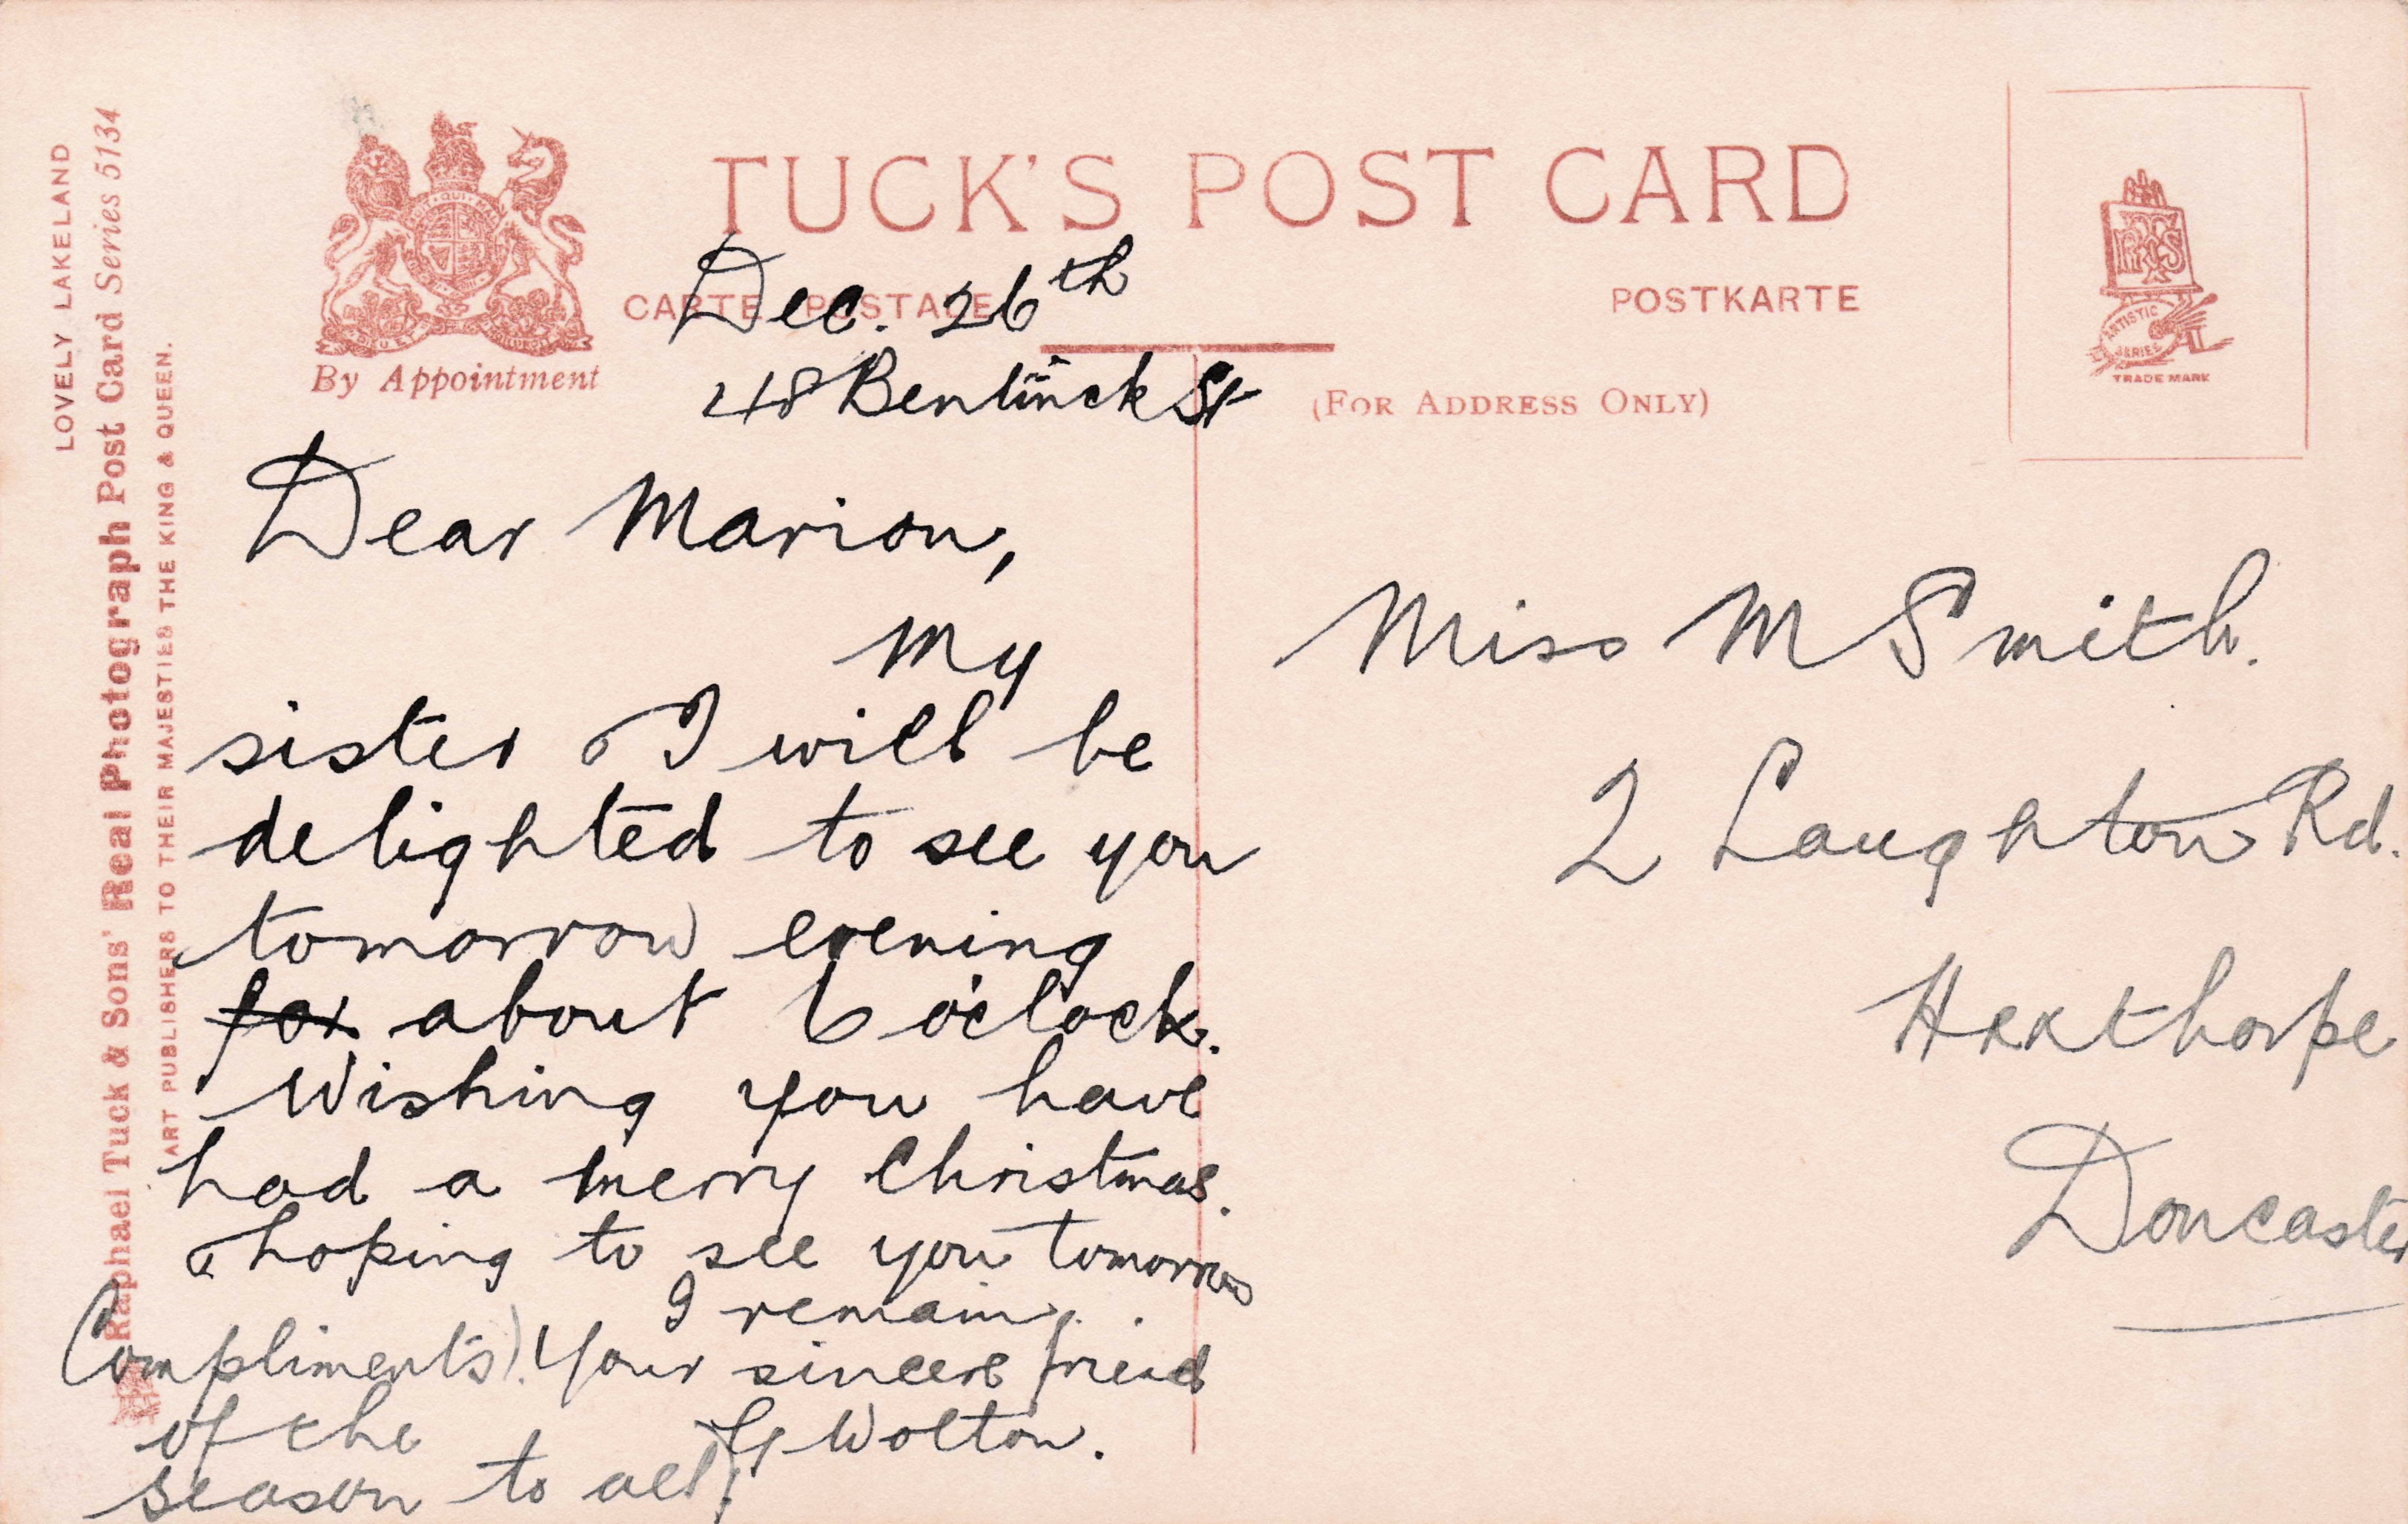 LOVELY LAKELAND
Raphael Tuck & Sons' Real Photograph Post Card Series 5134
ART PUBLISHERS TO THEIR MAJESTIES THE KING & QUEEN.
By Appointment
TUCK'S POST CARD
CARTE POSTALE
POSTKARTE
(FOR ADDRESS ONLY)
ARTISTIC SERIES
TRADE MARK
Dec. 26th
48 Bentinck St
Dear Marion,
My
sister & I will be
delighted to see you
tomorrow evening
for about 6 o'clock.
Wishing you have
had a merry Christmas.
& hoping to see you tomorrow
I remain
Your sincere friend
G Wolton.
Compliments
of the
season to all
Miss M Smith.
2 Laughton Rd.
Hexthorpe
Doncaster